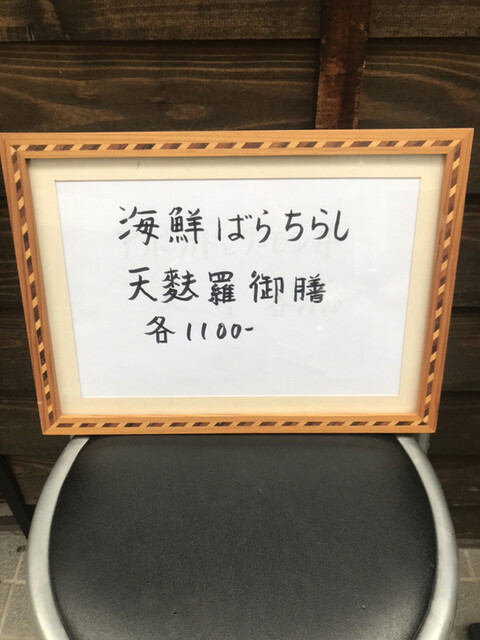 海鮮ばらちらし
天麩羅御膳
各1100-